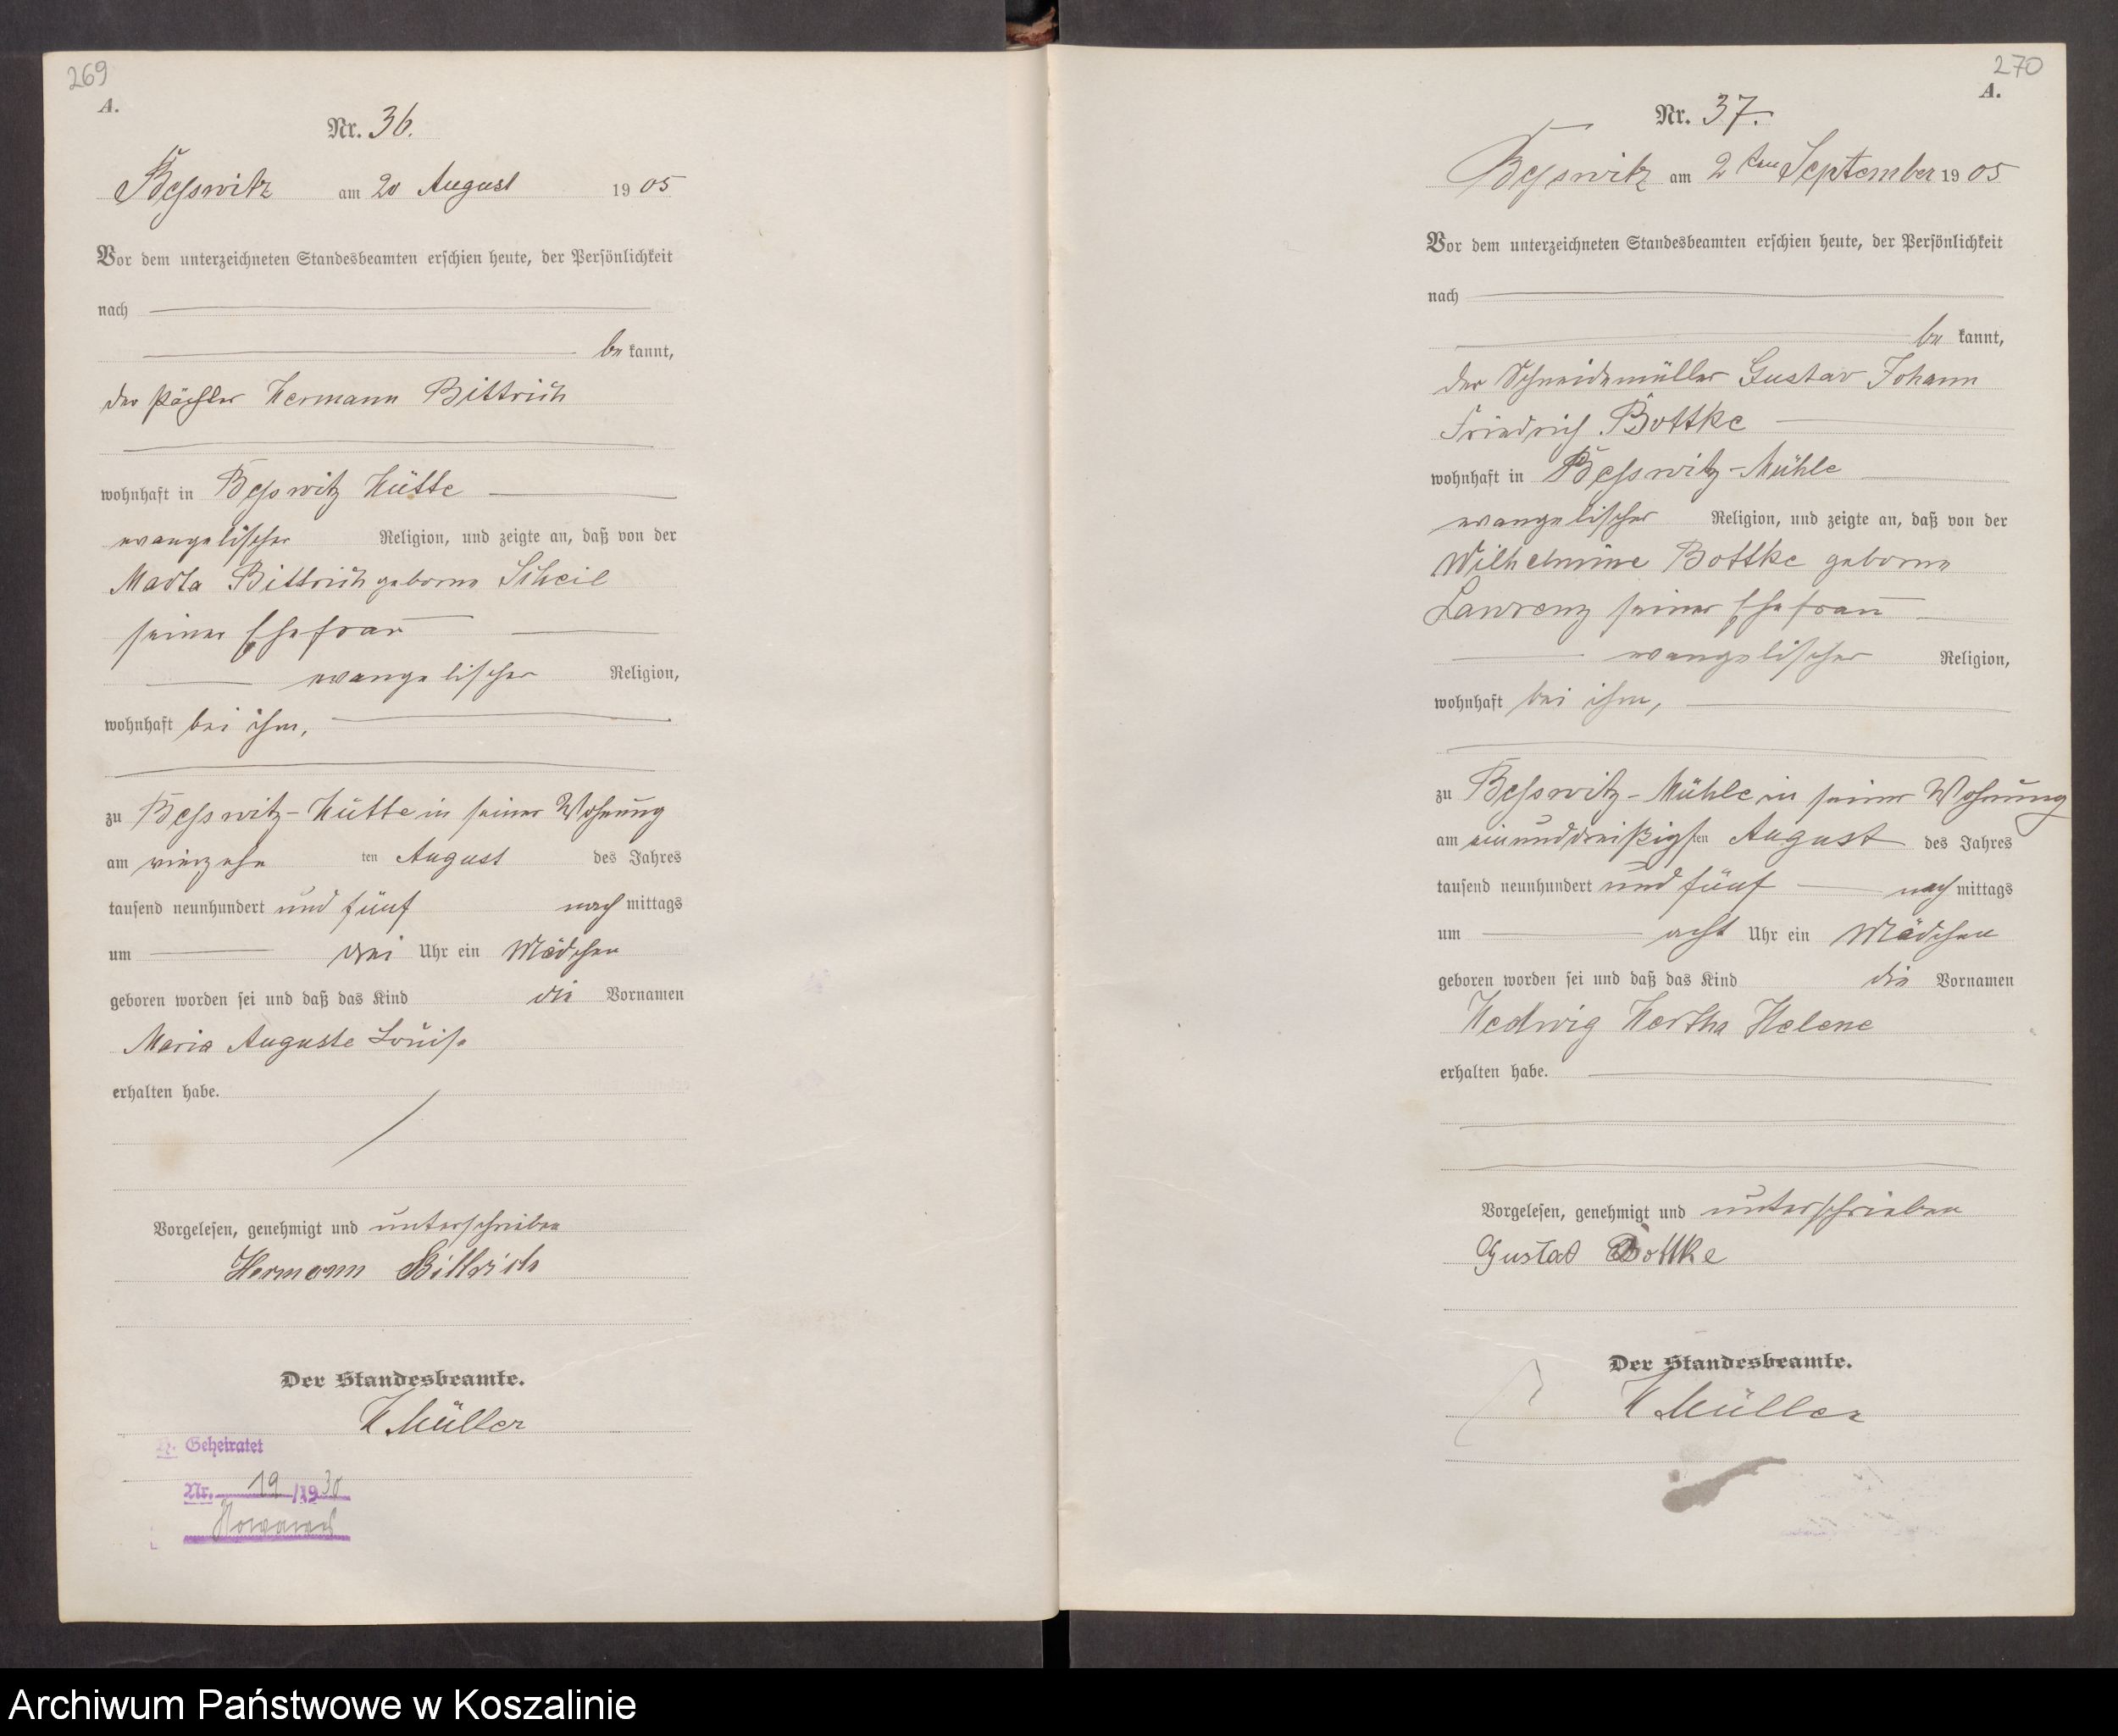 269
A.
Nr. 36.
Beßwitz am 20 August 1905
Vor dem unterzeichneten Standesbeamten erschien heute, der Persönlichkeit
nach
be kannt,
der Pächter Hermann Bittrich
wohnhaft in Beßwitz Hütte
evangelischer Religion, und zeigte an, daß von der
Marta Bittrich geborne Scheil
seiner Ehefrau
evangelischer Religion,
wohnhaft bei ihm,
zu Beßwitz-Hütte in seiner Wohnung
am vierzehn ten August des Jahres
tausend neunhundert und fünf nach mittags
um drei Uhr ein Mädchen
geboren worden sei und daß das Kind die Vornamen
Maria Auguste Louise
erhalten habe.
Vorgelesen, genehmigt und unterschrieben
Hermann Bittrich
Der Standesbeamte.
H Müller
Geheiratet
Nr. 19 /1930
Nowawes
270
A.
Nr. 37.
Beßwitz am 2 ten September 1905
Vor dem unterzeichneten Standesbeamten erschien heute, der Persönlichkeit
nach
be kannt,
der Schneidemüller Gustav Johann
Friedrich Bottke
wohnhaft in Beßwitz-Mühle
evangelischer Religion, und zeigte an, daß von der
Wilhelmine Bottke geborne
Lawrenz seiner Ehefrau
evangelischer Religion,
wohnhaft bei ihm,
zu Beßwitz-Mühle in seiner Wohnung
am einunddreißigsten August des Jahres
tausend neunhundert und fünf nach mittags
um acht Uhr ein Mädchen
geboren worden sei und daß das Kind die Vornamen
Hedwig Hertha Helene
erhalten habe.
Vorgelesen, genehmigt und unterschrieben
Gustav Bottke
Der Standesbeamte.
H Müller
Archiwum Państwowe w Koszalinie